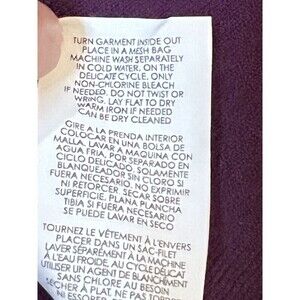 TURN GARMENT INSIDE OUT
PLACE IN A MESH BAG
MACHINE WASH SEPARATELY
IN COLD WATER, ON THE
DELICATE CYCLE, ONLY
NON-CHLORINE BLEACH
IF NEEDED. DO NOT TWIST OR
WRING. LAY FLAT TO DRY
WARM IRON IF NEEDED
CAN BE DRY CLEANED
GIRE A LA PRENDA INTERIOR
COLOCAR EN UNA BOLSA DE
MALLA. LAVAR A MAQUINA CON
AGUA FRIA, POR SEPARADO EN
CICLO DELICADO. SOLAMENTE
BLANQUEADOR SIN CLORO SI
FUERA NECESARIO. NO EXPRIMIR
NI RETORCER. SECAR SOBRE
SUPERFICIE, PLANA PLANCHA
TIBIA SI FUERA NECESARIO
SE PUEDE LAVAR EN SECO
TOURNEZ LE VÊTEMENT À L'ENVERS
PLACER DANS UN SAC-FILET
LAVER SÉPARÉMENT À LA MACHINE
À L'EAU FROIDE, AU CYCLE DÉLICAT
UTILISER UN AGENT DE BLANCHIMENT
SANS CHLORE AU BESOIN
SÉCHER À PLAT, NE PAS TORDRE
NI ESSORER